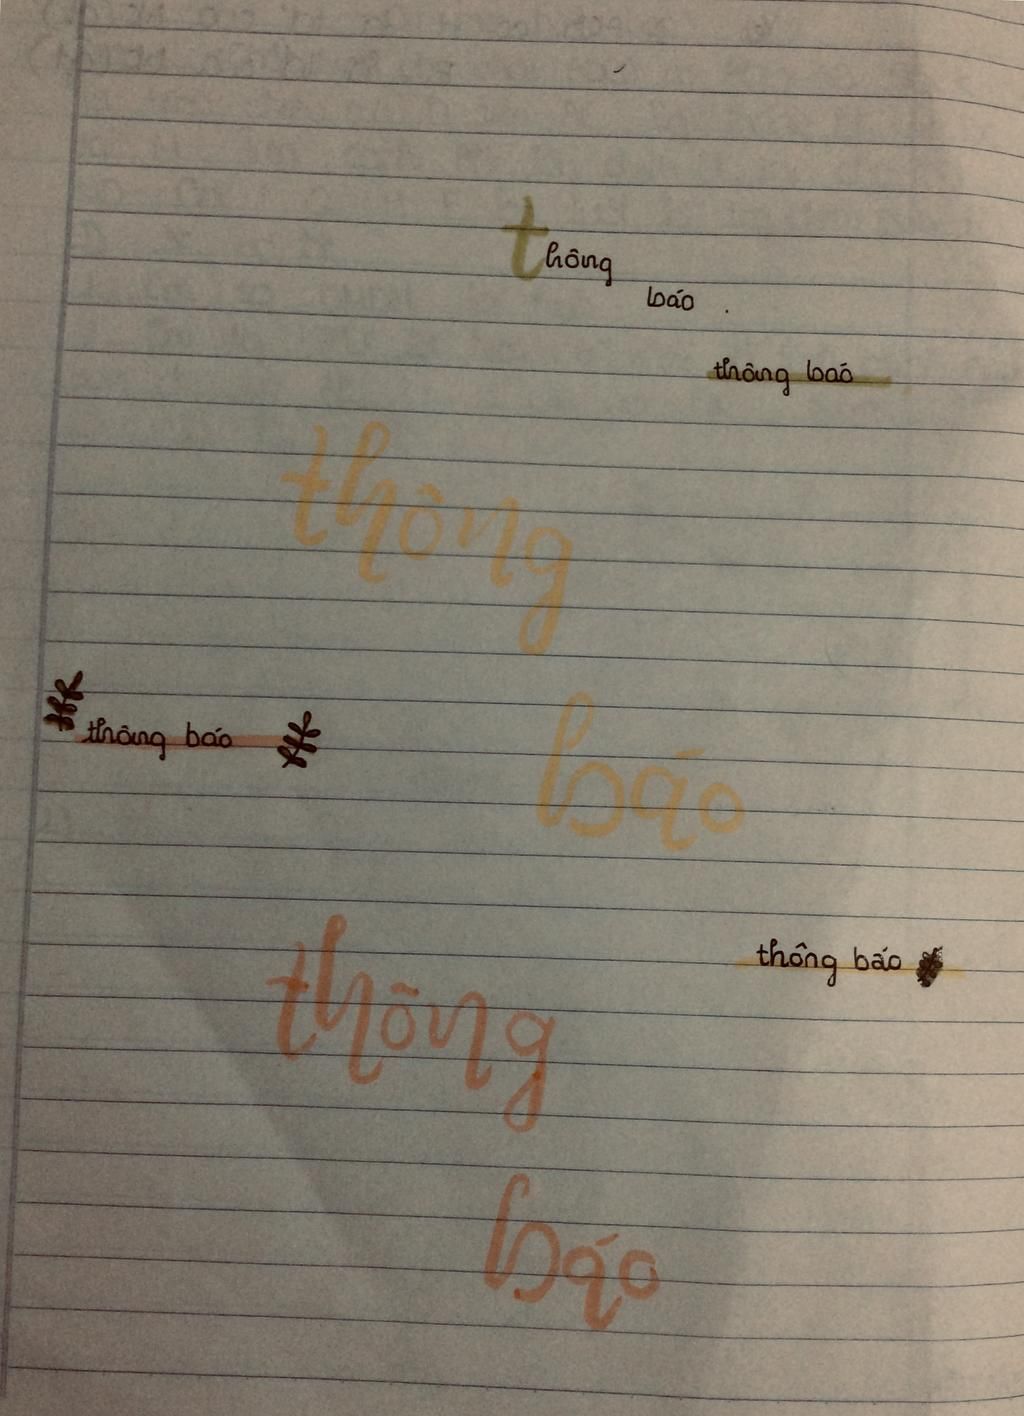 thông
báo
thông báo
thông
báo
thông báo
thông báo
thông
báo